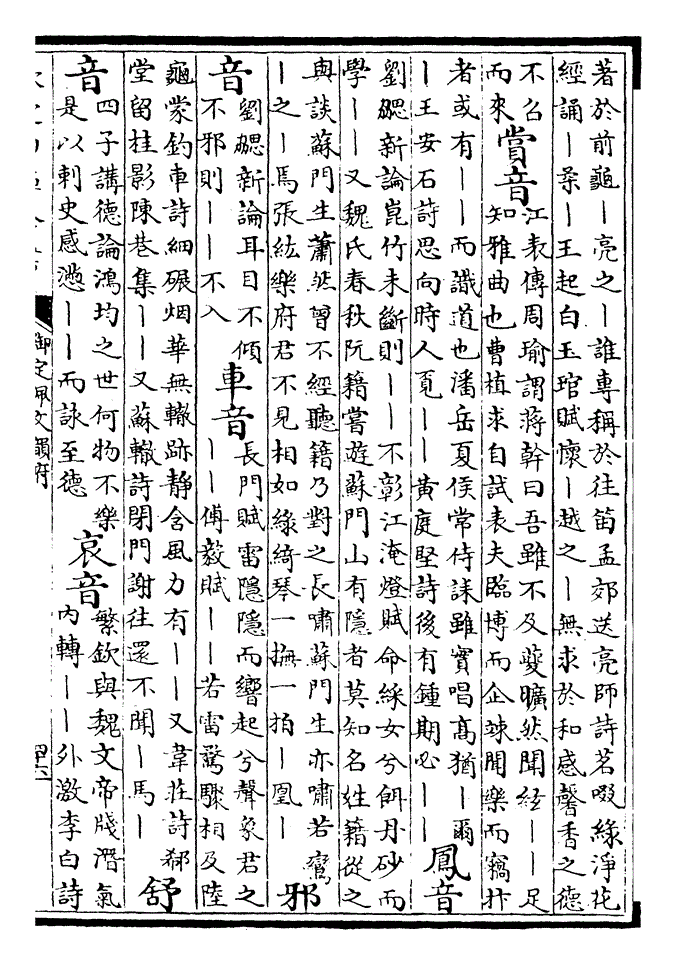 著於前龜丨亮之丨誰專稱於往笛孟郊送亮師詩茗啜緑淨花
經誦丨柔丨王起白玉琯賦懷丨越之丨無求於和感馨香之德
不召
而來
賞音
江表傳周瑜謂蔣幹曰吾雖不及夔曠然聞絃丨丨足
知雅曲也曹植求自試表夫臨博而企竦聞樂而竊抃
者或有丨丨而識道也潘岳夏侯常侍誄雖實唱高猶丨爾
丨王安石詩思向時人覓丨丨黄庭堅詩後有鍾期必丨丨
鳳音
劉勰新論崑竹未斷則丨丨不彰江淹燈賦命綵女兮餌丹砂而
學丨丨又魏氏春秋阮籍嘗遊蘇門山有隱者莫知名姓籍從之
與談蘇門生蕭然曾不經聽籍乃對之長嘯蘇門生亦嘯若鸞
丨之丨焉張紘樂府君不見相如緑綺琴一撫一拍丨凰丨
邪
音
劉勰新論耳目不傾
不邪則丨丨不入
車音
長門賦雷隱隱而響起兮聲象君之
丨丨傅毅賦丨丨若雷驚驟相及陸
龜蒙釣車詩細碾烟華無轍跡靜含風力有丨丨又韋莊詩郄
堂留桂影陳巷集丨丨又蘇轍詩閉門謝往還不聞丨馬丨
舒
音
四子講德論鴻均之世何物不樂
是以刺史感懣丨丨而詠至德
哀音
繁欽與魏文帝牋潛氣
内轉丨丨外激李白詩
御定佩文韻府